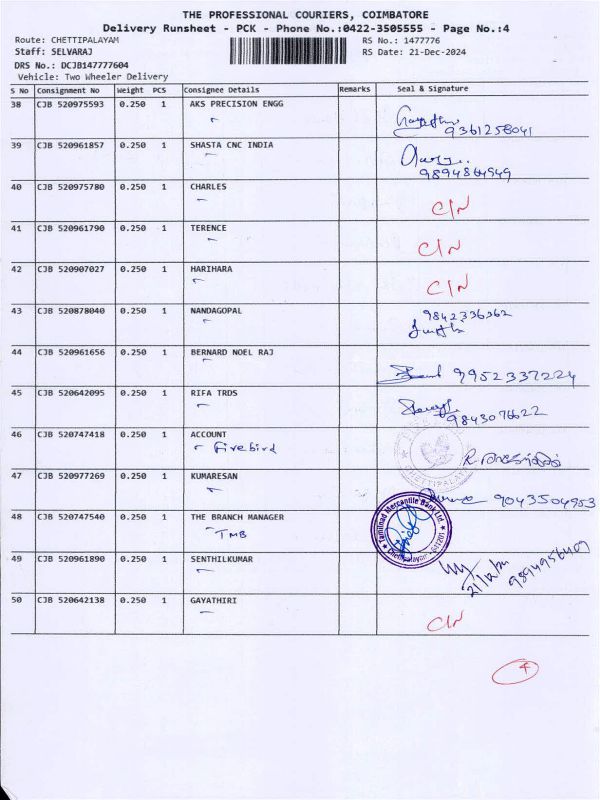 THE PROFESSIONAL COURIERS, COIMBATORE
Delivery Runsheet - PCK - Phone No.:0422-3505555 - Page No.:4
Route: CHETTIPALAYAM RS No.: 1477776
Staff: SELVARAJ RS Date: 21-Dec-2024
DRS No.: DCJB147777604
Vehicle: Two Wheeler Delivery
S No Consignment No Weight PCS Consignee Details Remarks Seal & Signature
38 CJB 520975593 0.250 1 AKS PRECISION ENGG
9361258041
39 CJB 520961857 0.250 1 SHASTA CNC INDIA
40 CJB 520975780 0.250 1 CHARLES C/N
41 CJB 520961790 0.250 1 TERENCE C/N
42 CJB 520907027 0.250 1 HARIHARA C/N
43 CJB 520878040 0.250 1 NANDAGOPAL 9842336362
44 CJB 520961656 0.250 1 BERNARD NOEL RAJ
9952337224
45 CJB 520642095 0.250 1 RIFA TRDS
9843076622
46 CJB 520747418 0.250 1 ACCOUNT
Firebird
CHETTIPALAYAM
47 CJB 520977269 0.250 1 KUMARESAN
9043504953
48 CJB 520747540 0.250 1 THE BRANCH MANAGER
TMB
Tamilnad Mercantile Bank Ltd.
Chettipalayam - 641201
49 CJB 520961890 0.250 1 SENTHILKUMAR
50 CJB 520642138 0.250 1 GAYATHIRI
C/N
4